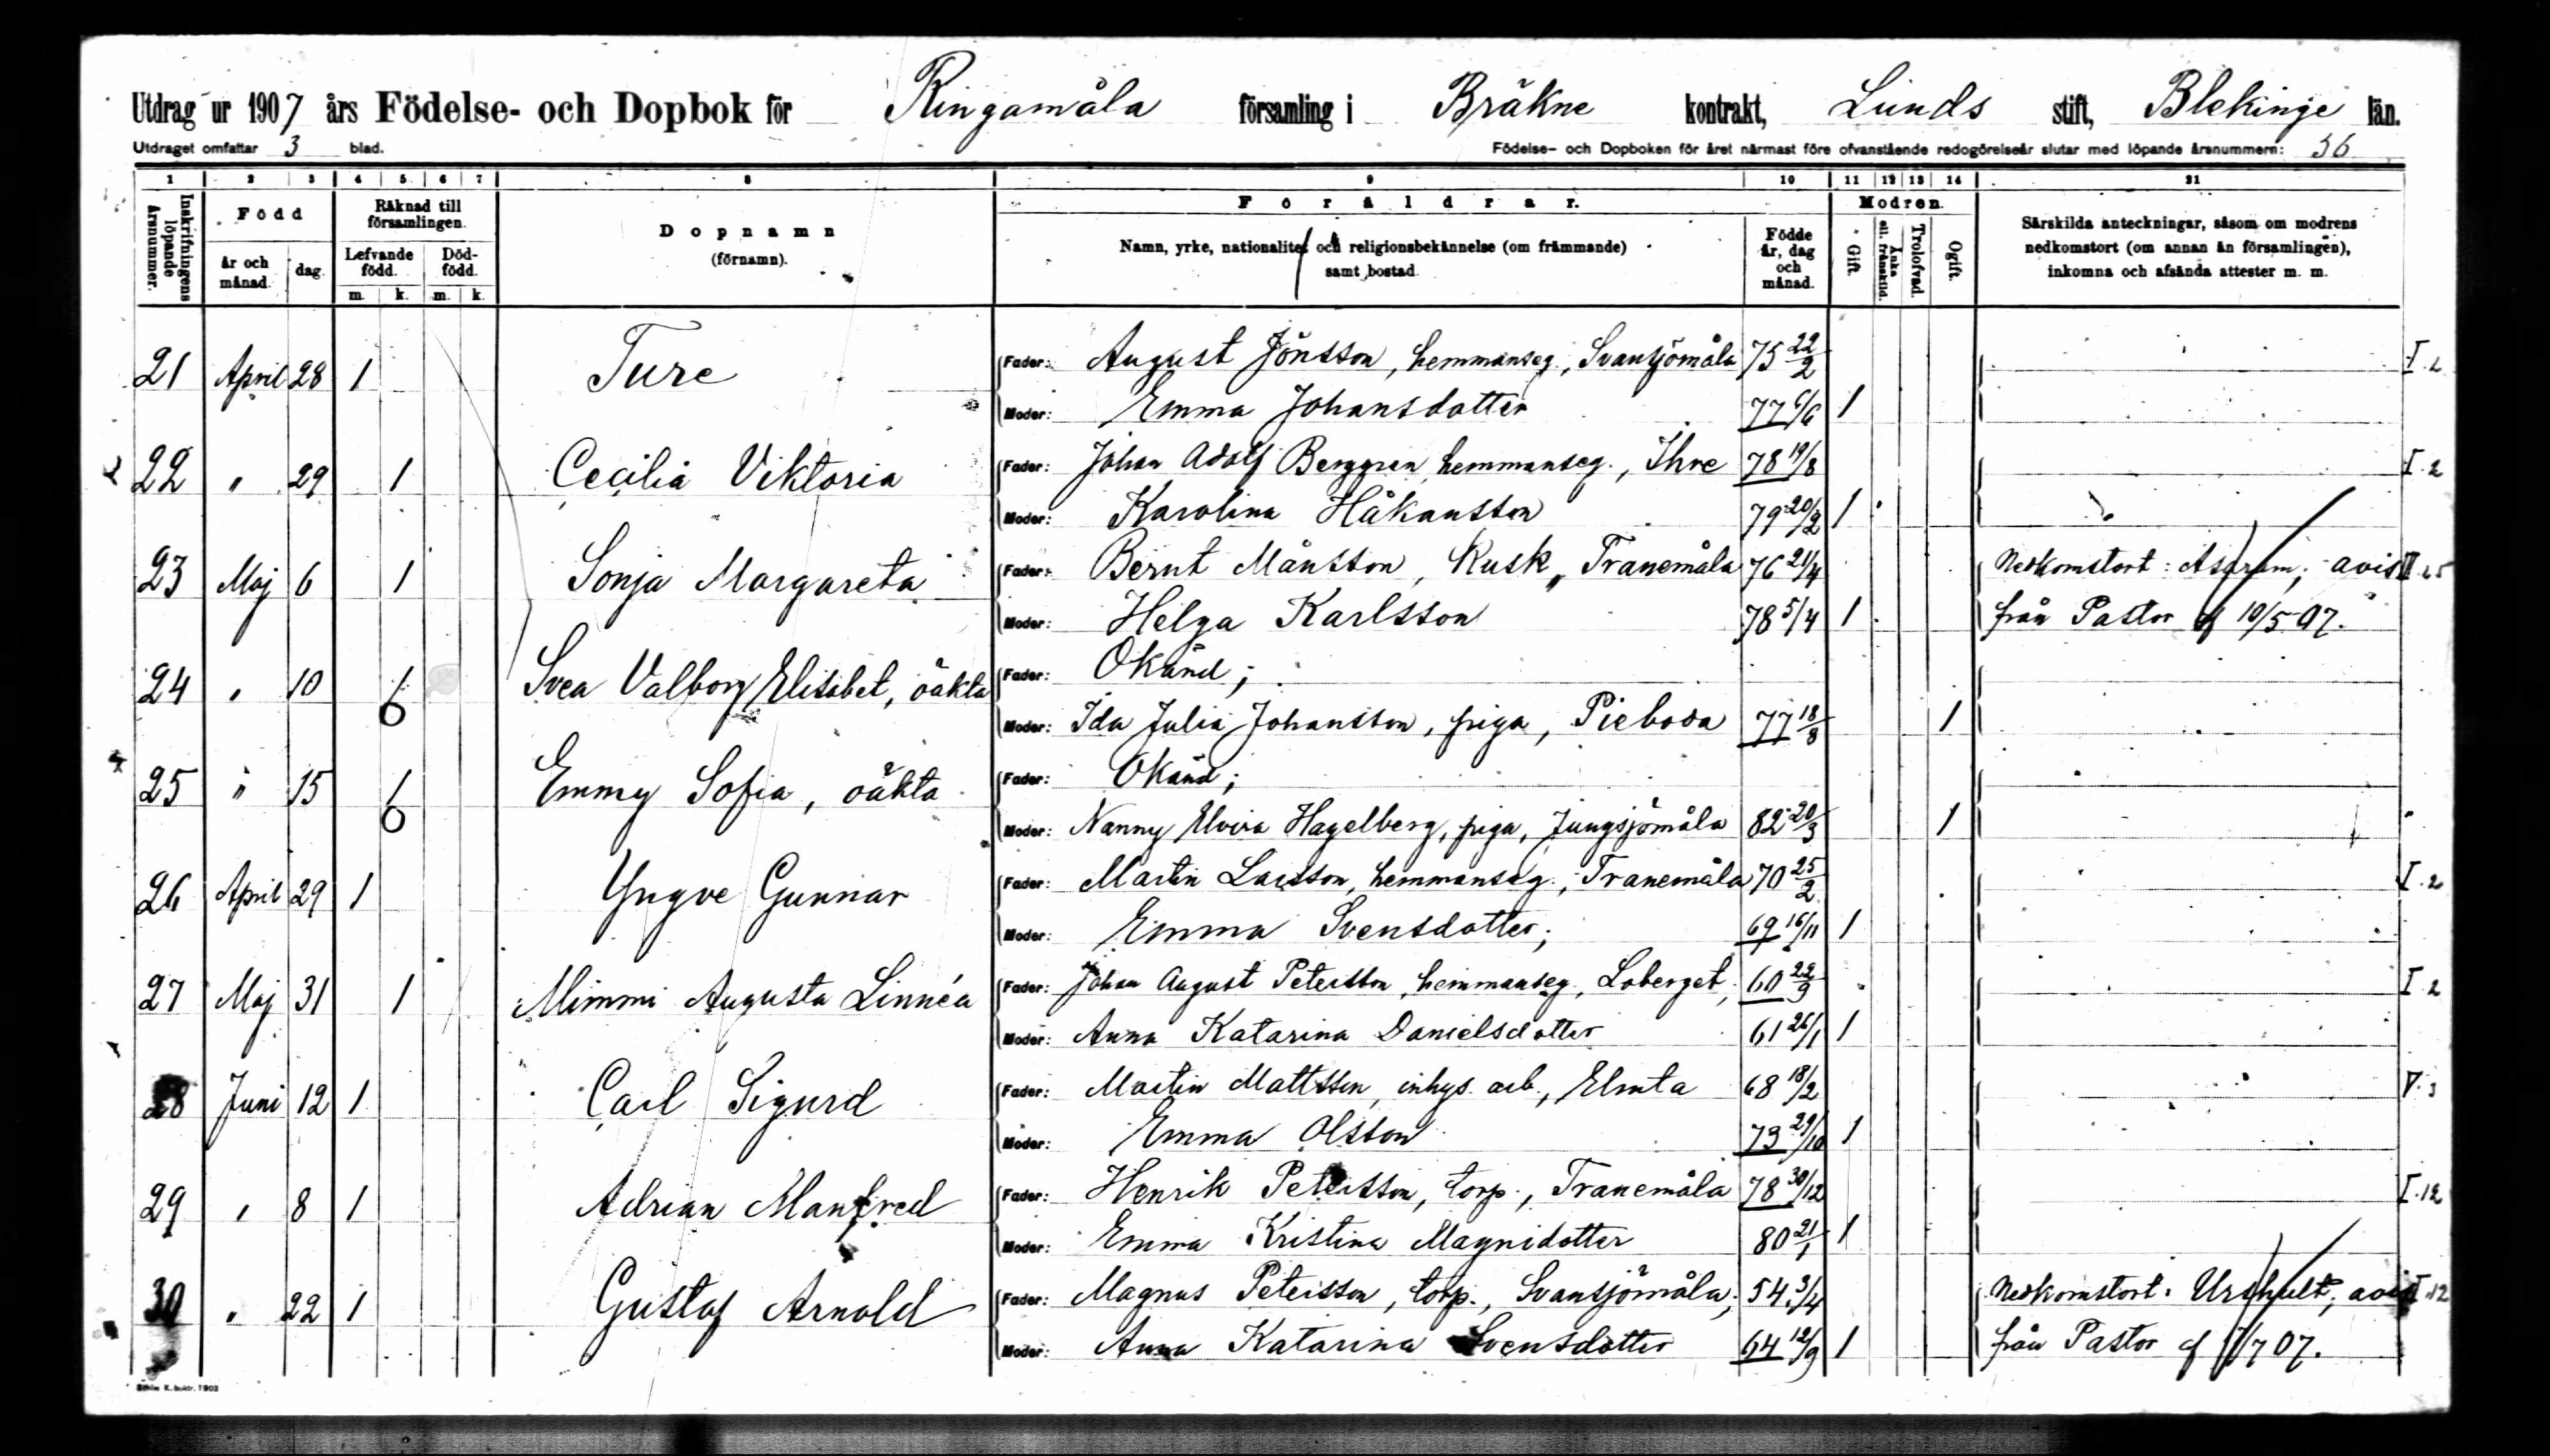 Utdrag ur 1907 års Födelse- och Dopbok för Ringamåla församling i Bräkne kontrakt, Lunds stift, Blekinge län.
Utdraget omfattar 3 blad. Födelse- och Dopboken för året närmast före ofvanstående redogörelseår slutar med löpande årsnummern: 56
1 2 3 4 5 6 7 8 9 10 11 12 13 14 21
Inskrifningens löpande årsnummer.
Född
år och månad.
dag.
Räknad till församlingen.
Lefvande född.
Död-född.
m. k. m. k.
Dopnamn
(förnamn).
Föräldrar.
Namn, yrke, nationalitet och religionsbekännelse (om främmande)
samt bostad.
Födde år, dag och månad.
Modren.
Gift.
Änka ell. frånskild.
Trolofvad.
Ogift.
Särskilda anteckningar, såsom om modrens
nedkomstort (om annan än församlingen),
inkomna och afsända attester m. m.
21 April 28 1 Ture Fader: August Jönsson, hemmanseg., Svansjömåla 75 22/2 I.2
Moder: Emma Johansdotter 77 6/6 1
22 " 29 1 Cecilia Viktoria Fader: Johan Adolf Berggren, hemmanseg., Ihre 78 19/8 I.2
Moder: Karolina Håkansson 79 20/2 1
23 Maj 6 1 Sonja Margareta Fader: Bernt Månsson, Kusk, Tranemåla 76 21/4 Nedkomstort: Asarum; avis
Moder: Helga Karlsson 78 5/4 1 från Pastor 10/5 07.
24 " 10 1 Svea Valborg Elisabet, oäkta Fader: Okänd;
6 Moder: Ida Julia Johansson, piga, Pieboda 77 18/8 1
25 " 15 1 Emmy Sofia, oäkta Fader: Okänd;
6 Moder: Nanny Elvira Hagelberg, piga, Jungsjömåla 82 20/3 1
26 April 29 1 Yngve Gunnar Fader: Martin Larsson, hemmanseg., Tranemåla 70 25/2 I.2
Moder: Emma Svensdotter; 69 16/11 1
27 Maj 31 1 Mimmi Augusta Linnéa Fader: Johan August Petersson, hemmanseg., Loberget, 60 22/9 I.2
Moder: Anna Katarina Danielsdotter 61 26/1 1
28 Juni 12 1 Carl Sigurd Fader: Martin Mattsson, inhys. arb., Elmta 68 18/2 V.3
Moder: Emma Olsson 73 29/10 1
29 " 8 1 Adrian Manfred Fader: Henrik Petersson, torp., Tranemåla 78 30/12 I.12
Moder: Emma Kristina Magnidotter 80 21/1 1
30 " 22 1 Gustaf Arnold Fader: Magnus Petersson, torp., Svansjömåla; 54 3/4 Nedkomstort: Urshult; avis I.12
Moder: Anna Katarina Svensdotter 64 12/9 1 från Pastor /7 07.
Sthlm K. boktr. 1903